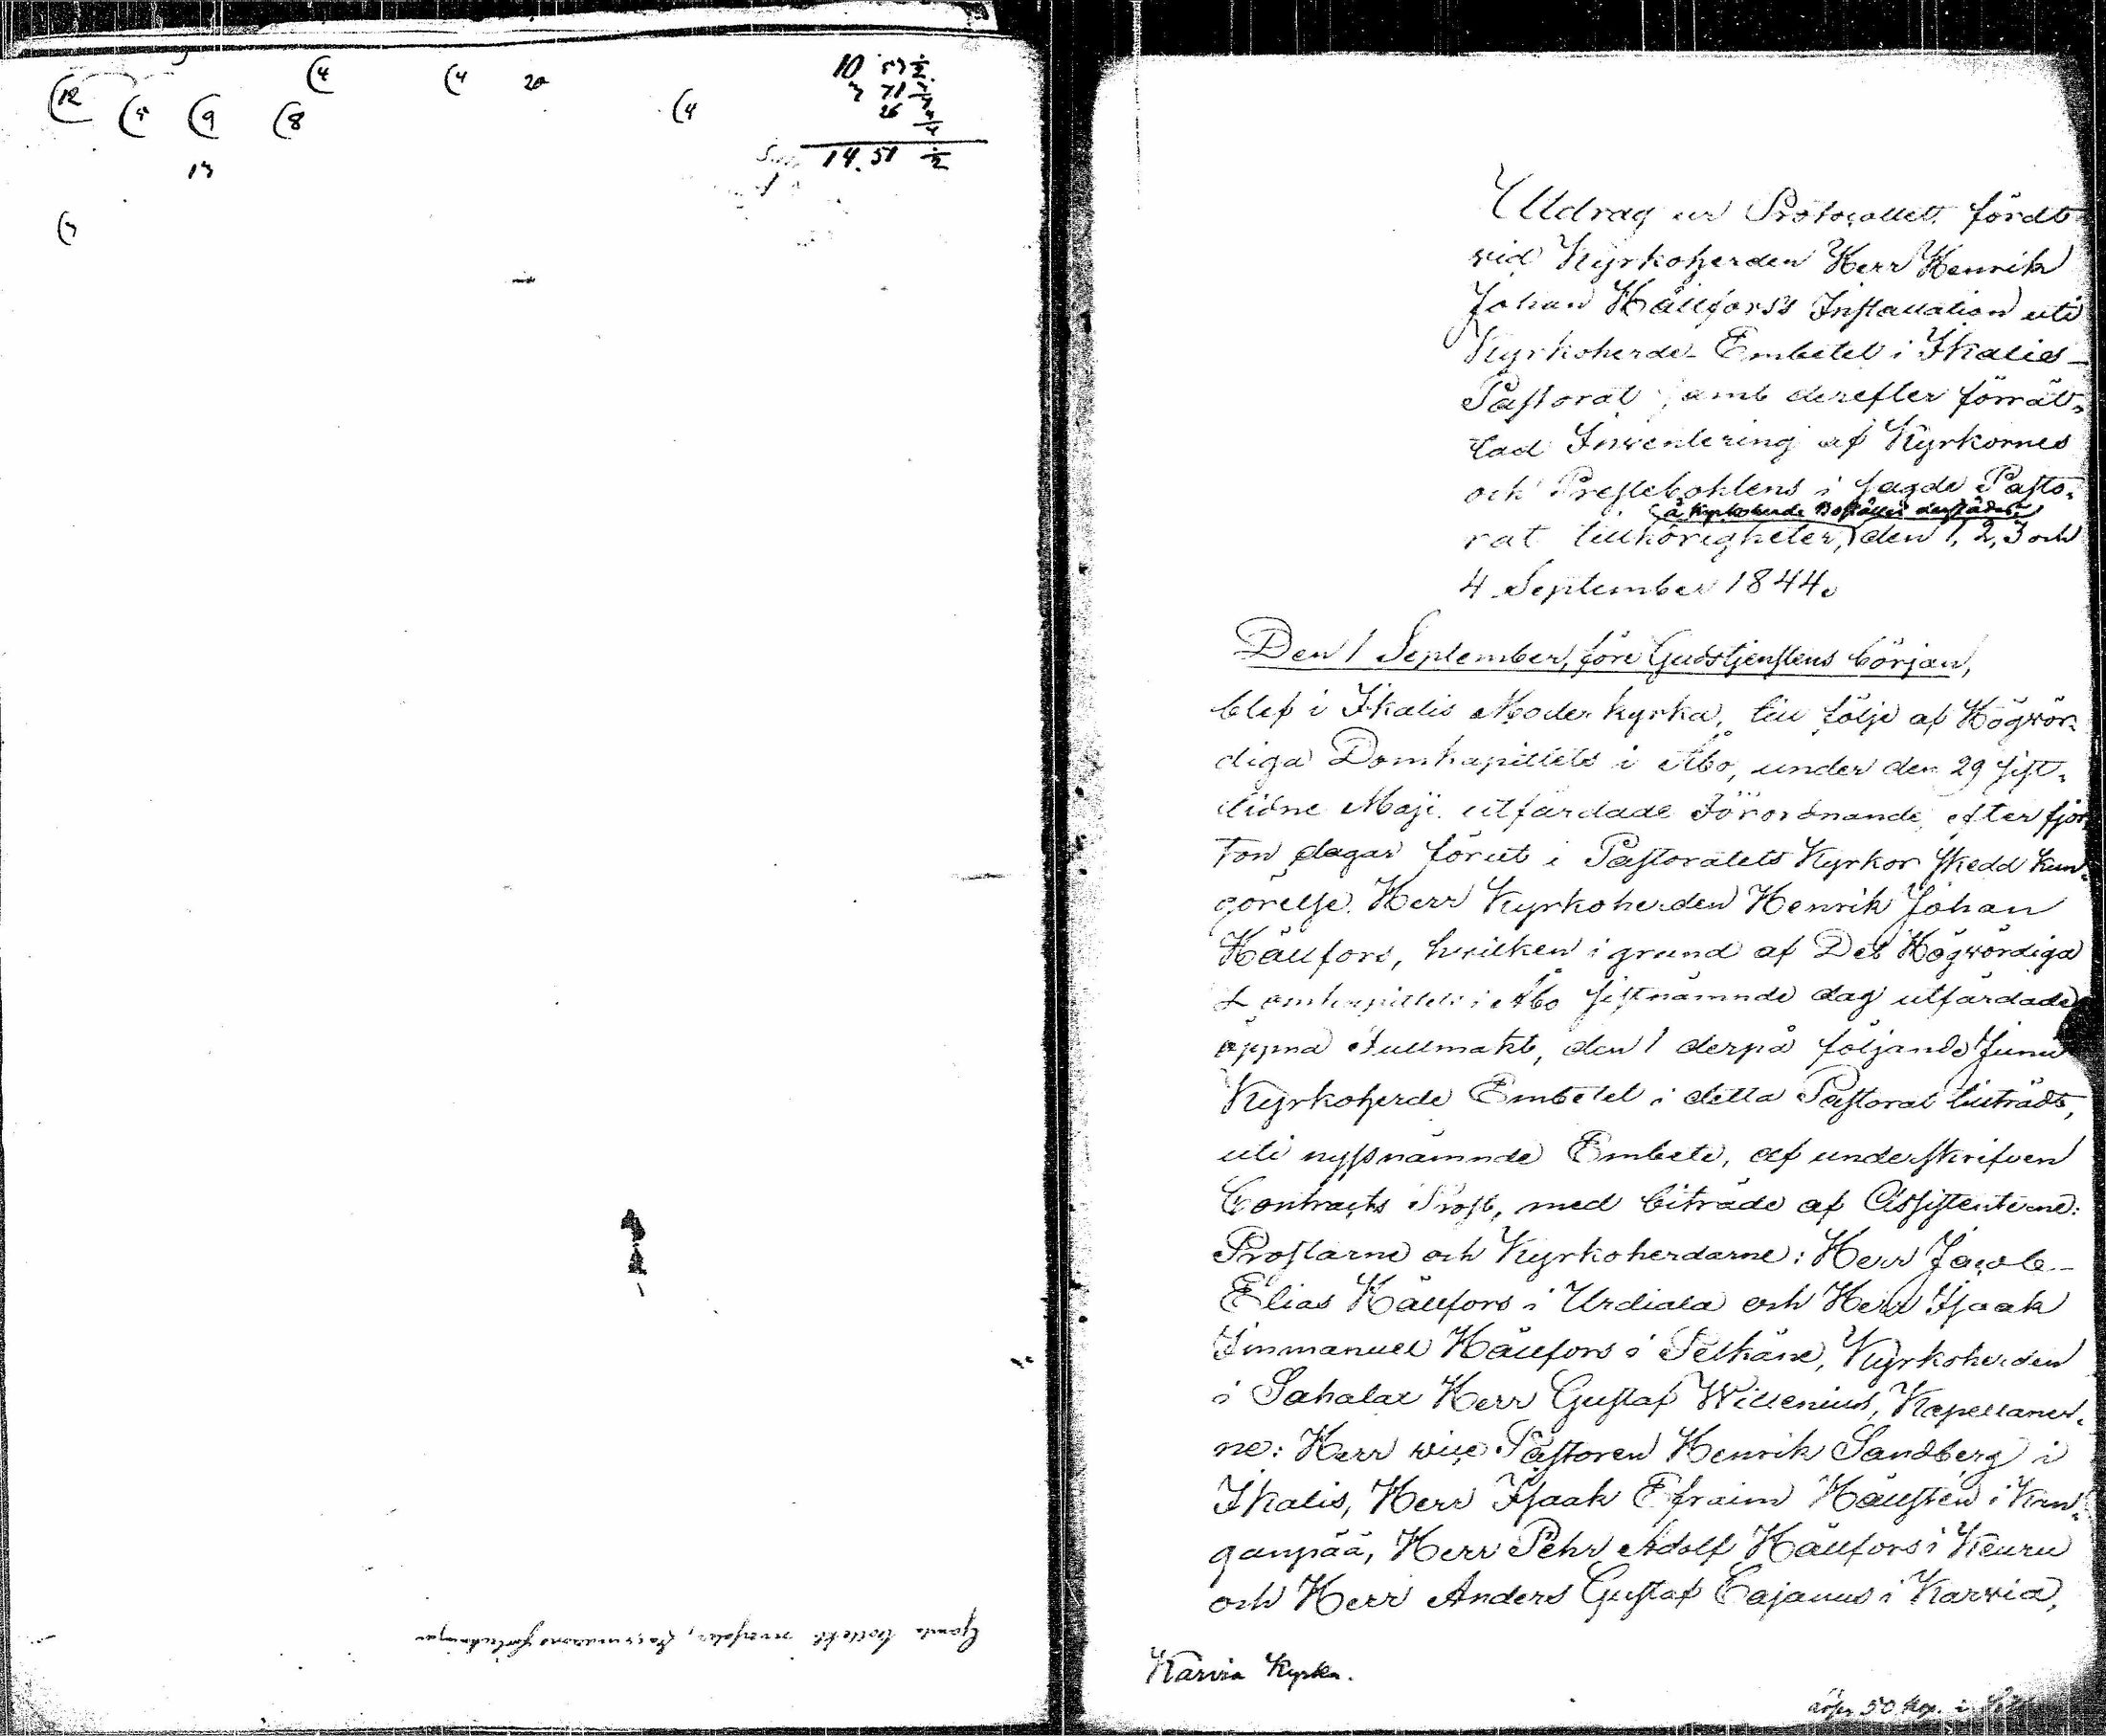 (12 (4 (9 (8 (4 (4 20 (4
13
(3
10 53 1/2
3 71
26
14.51 1/2
Utdrag ur Protocollet, fördt
vid Kyrkoherden Herr Henrik
Johan Hällfors's Installation uti
Kyrkoherde-Embetet i Ikalis
Pastorat samt derefter förrät-
tad Inventering af Kyrkornes
och Prestebohlens i sagde Pasto-
å Kyrkoherde Bostället derstädes
rat tillhörigheter, den 1, 2, 3 och
4 September 1844.
Den 1 September, före Gudstjenstens början,
blef i Ikalis Moderkyrka, till följe af Högvör-
diga Domkapitlets i Åbo, under den 29 sist-
lidne Maji utfärdade Förordnande, efter fjor-
ton dagar förut i Pastoratets Kyrkor skedd kun-
görelse, Herr Kyrkoherden Henrik Johan
Hällfors, hvilken i grund af Det Högvördiga
Domkapitlets i Åbo sistnämnde dag utfärdade
öppna Fullmakt, den 1 derpå följande Junii
Kyrkoherde Embetet i detta Pastorat tillträdt,
uti nyssnämnde Embete, af underskrifven
Contracts Prost, med biträde af Assistenterne:
Prostarne och Kyrkoherdarne: Herr Jacob
Elias Hällfors i Urdiala och Herr Isaak
Immanuel Hällfors i Pelkäne, Kyrkoherden
i Sahalax Herr Gustaf Willenius, Kapellaner-
ne: Herr vice Pastoren Henrik Sandberg i
Ikalis, Herr Isaak Efraim Hällsten i Kan-
ganpää, Herr Pehr Adolf Hällfors i Keuru
och Herr Anders Gustaf Cajanus i Karvia,
Karvia Kyrka.
50 kop. i
Gamla